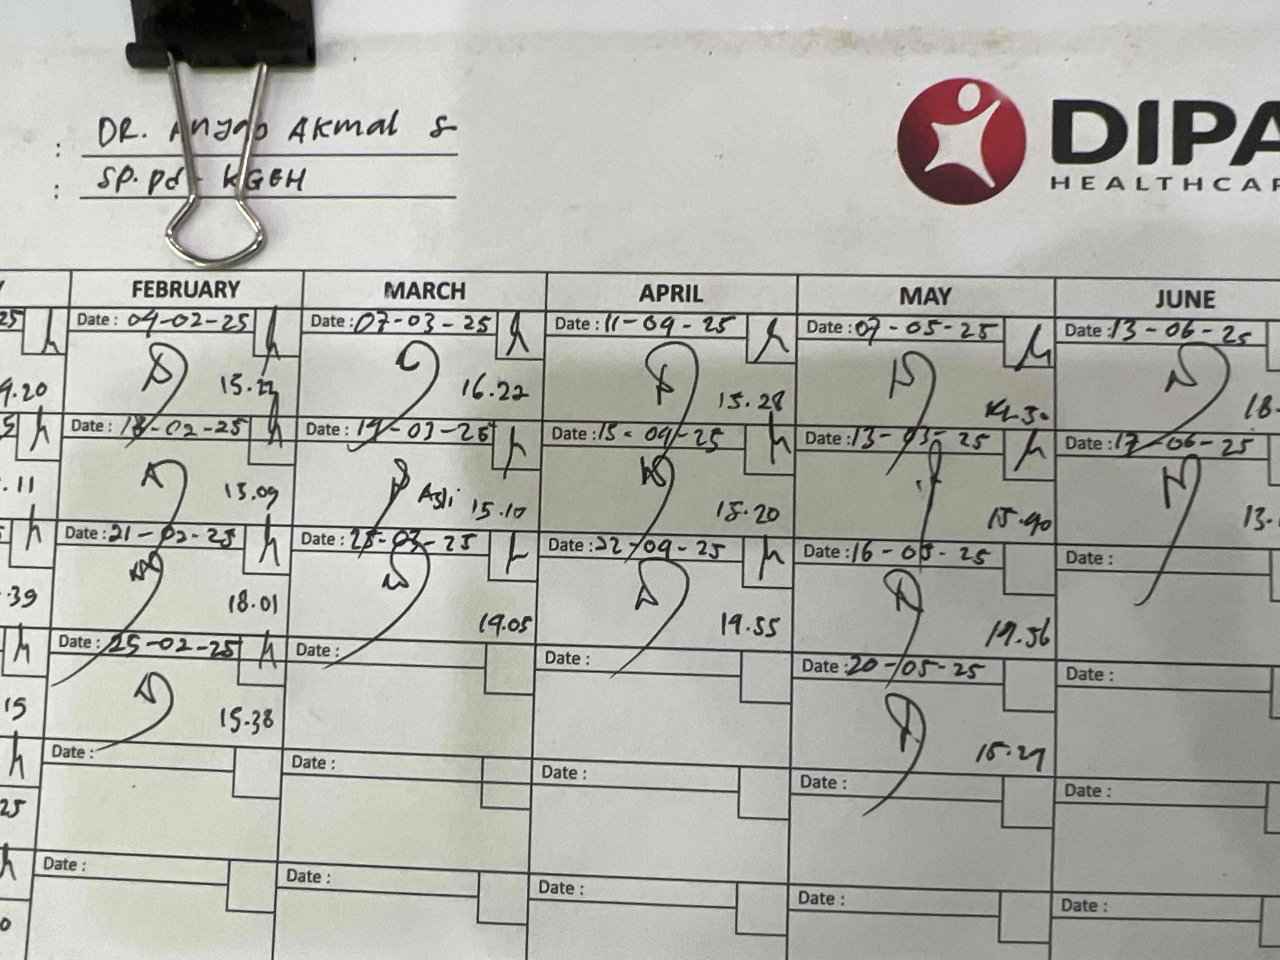 : DR. Anggo Akmal S
: SP. pd - KGEH
DIPA
HEALTHCAR
FEBRUARY MARCH APRIL MAY JUNE
25 Date : 04-02-25 Date : 07-03-25 Date : 11-04-25 Date : 07-05-25 Date : 13-06-25
9.20 16.22 15.28 18.
Date : 18-02-25 Date : 19-03-25 Date : 15-04-25 Date : 13-05-25 Date : 17-06-25
.11 15.09 Asli 15.10 15.20 15.40 13.
Date : 21-02-25 Date : 25-03-25 Date : 22-04-25 Date : 16-05-25 Date :
.39 18.01 19.05 19.55 19.56
Date : 25-02-25 Date : Date : Date : 20-05-25 Date :
15 15.38 15.27
Date : Date : Date : Date : Date :
25
Date : Date : Date : Date : Date :
0